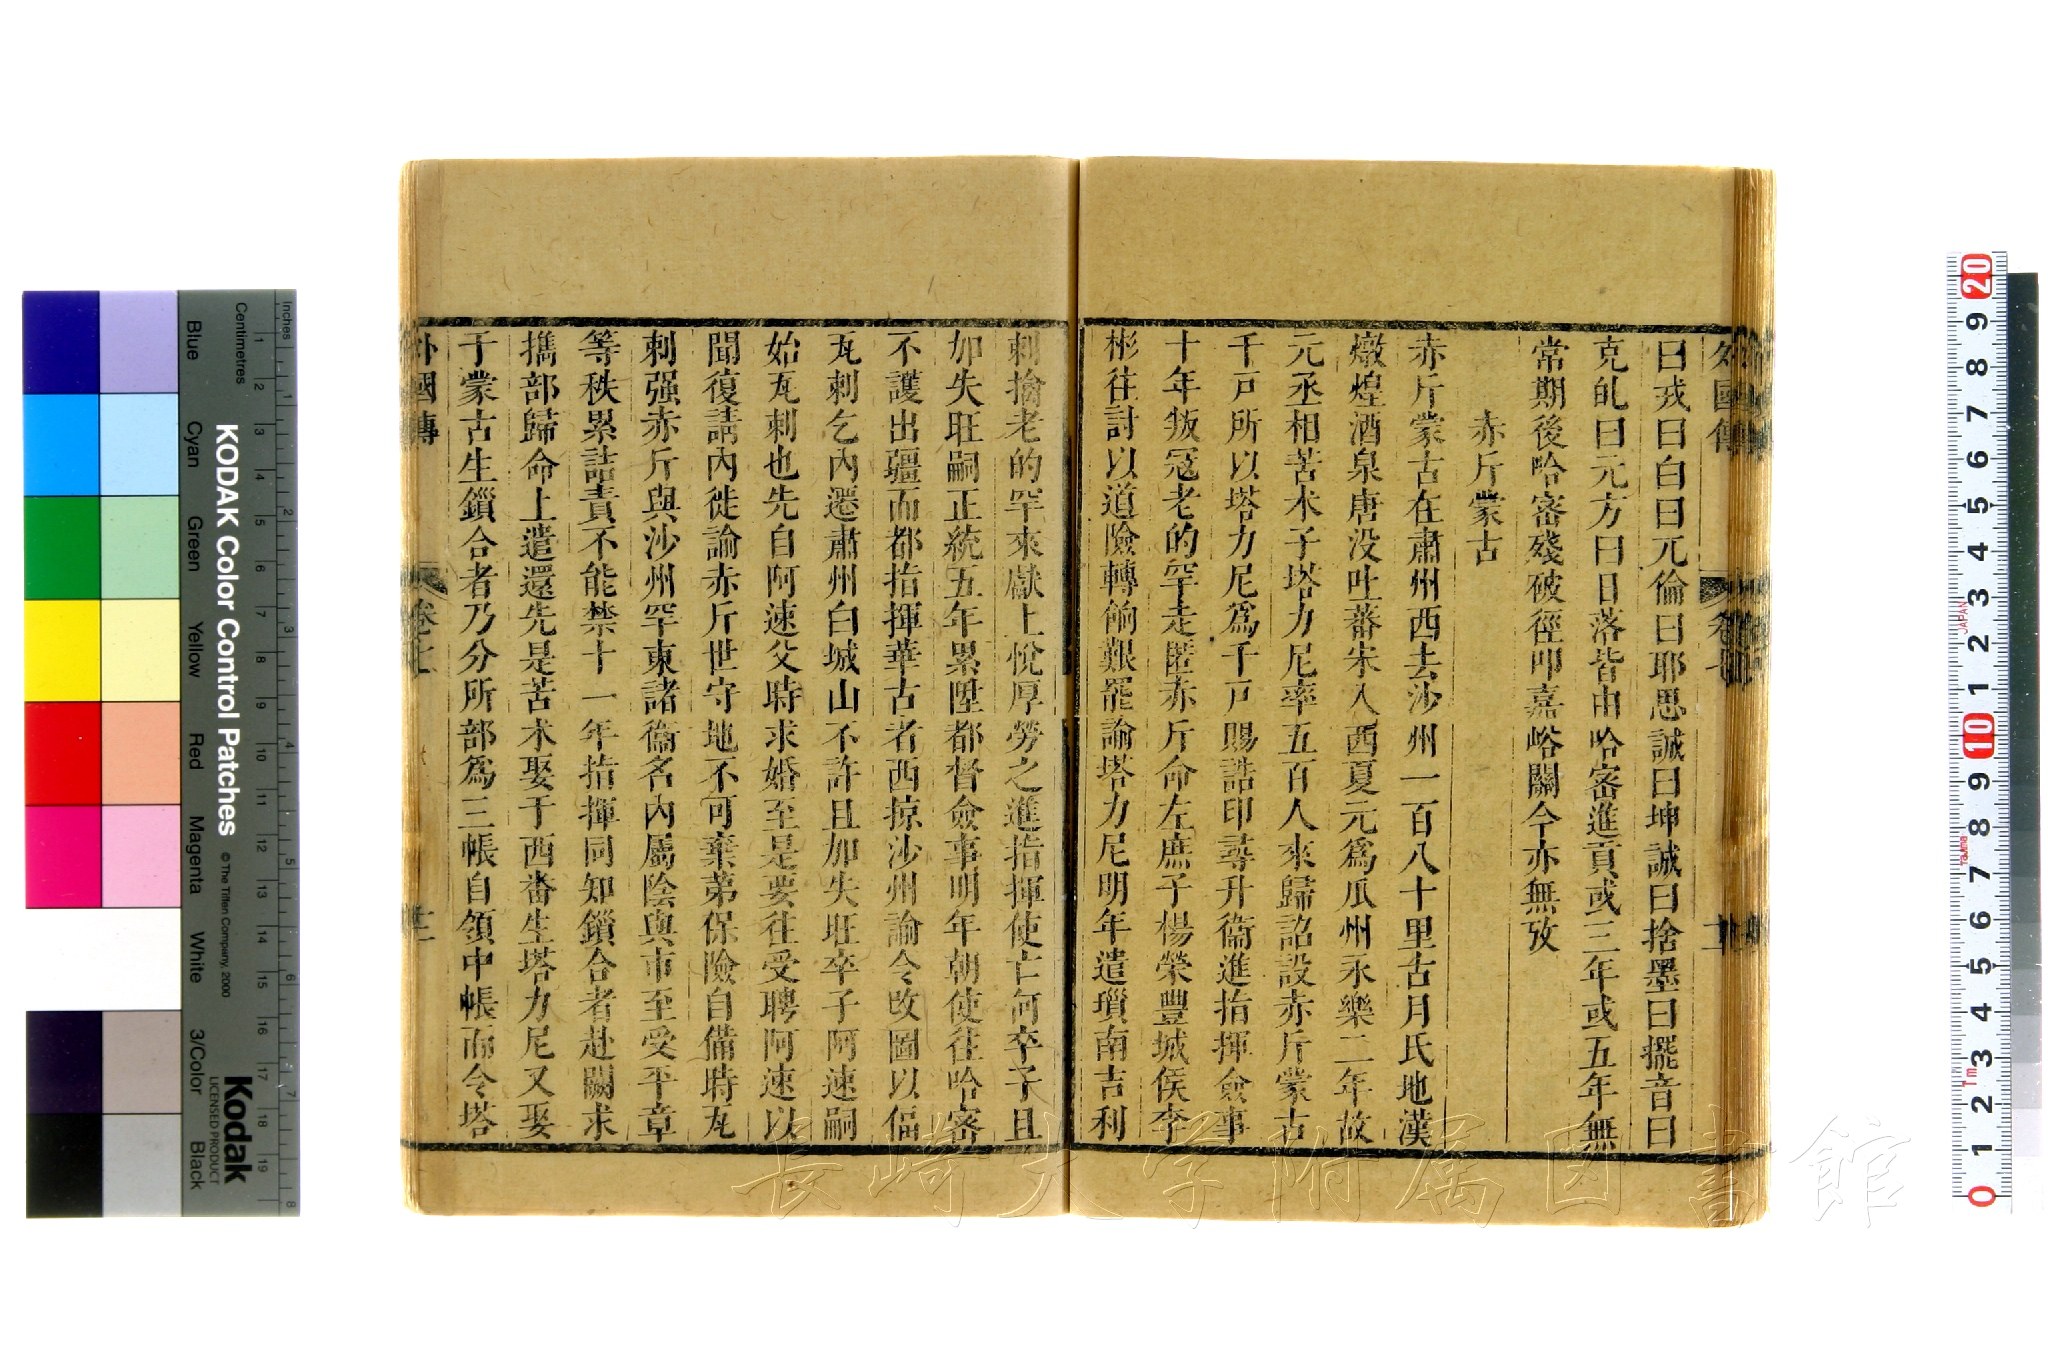 外國傳 卷七
曰戎曰白曰兀倫曰耶思誠曰坤誠曰捨墨曰擺音曰
克癿曰元方曰日落皆由哈密進貢或三年或五年無
常期後哈密殘破徑叩嘉峪關今亦無攷
赤斤蒙古
赤斤蒙古在肅州西去沙州一百八十里古月氏地漢
燉煌酒泉唐没吐蕃宋入西夏元爲瓜州永樂二年故
元丞相苦木子塔力尼率五百人來歸詔設赤斤蒙古
千戸所以塔力尼爲千戸賜誥印尋升衞進指揮僉事
十年叛冦老的罕走匿赤斤命左庶子楊榮豐城侯李
彬往討以道險轉餉艱罷諭塔力尼明年遣瑣南吉利
剌擒老的罕來獻上悅厚勞之進指揮使亡何卒子且
加失旺嗣正統五年累陞都督僉事明年朝使往哈密
不護出疆而都指揮華古者西掠沙州諭令改圖以偪
瓦剌乞內遷肅州白城山不許且加失旺卒子阿速嗣
始瓦剌也先自阿速父時求婚至是要往受聘阿速以
聞復請內徙諭赤斤世守地不可棄第保險自備時瓦
剌强赤斤與沙州罕東諸衞名內屬陰與市至受平章
等秩累詰責不能禁十一年指揮同知鎖合者赴闕求
擕部歸命上遣還先是苦术娶于西畨生塔力尼又娶
于蒙古生鎖合者乃分所部爲三帳自領中帳而令塔
外國傳 卷之七 廿二
KODAK Color Control Patches
© The Tiffen Company, 2000
Kodak
LICENSED PRODUCT
Inches
Centimetres
Blue Cyan Green Yellow Red Magenta White 3/Color Black
JAPAN
Tajima
Tm
長崎大学附属図書館